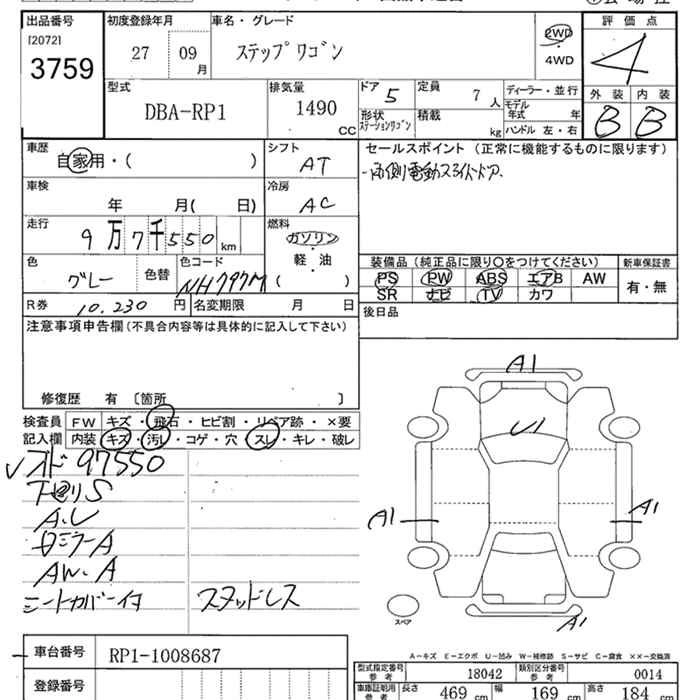 出品番号
[2072]
3759
初度登録年月
27 09 月
車名・グレード
ステップワゴン
2WD
・
4WD
評価点
4
型式
DBA-RP1
排気量
1490 CC
ドア 5
定員 7 人
ディーラー・並行
形状
ステーションワゴン
積載 kg
モデル
年式 年
ハンドル 左・右
外装 内装
B B
車歴
自家用・( )
シフト
AT
セールスポイント (正常に機能するものに限ります)
・両側電動スライドドア.
車検
年 月( 日)
冷房
AC
走行
9万7千550 km
燃料
ガソリン
軽・油
( )
色
グレー
色替
色コード
NH797M
装備品 (純正品に限り○をつけてください)
新車保証書
PS PW ABS エアB AW
SR ナビ TV カワ
有・無
R券 10,230 円
名変期限 月 日
後日品
注意事項申告欄(不具合内容等は具体的に記入して下さい)
修復歴 有 〔箇所 〕
検査員
記入欄
FW キズ・飛石・ヒビ割・リペア跡・×要
内装 キズ・汚レ・コゲ・穴・スレ・キレ・破レ
オド 97550
下回りS
A.U
AW.A
シートカバーイタ
スタッドレス
A1
U1
A1
A1
A1
スペア
A-キズ E-エクボ U-凹み W-補修跡 S-サビ C-腐食 ××-交換済
車台番号
RP1-1008687
登録番号
型式指定番号
参考
18042
類別区分番号
参考
0014
車庫証明用
参考
長さ 469 cm
幅 169 cm
高さ 184 cm